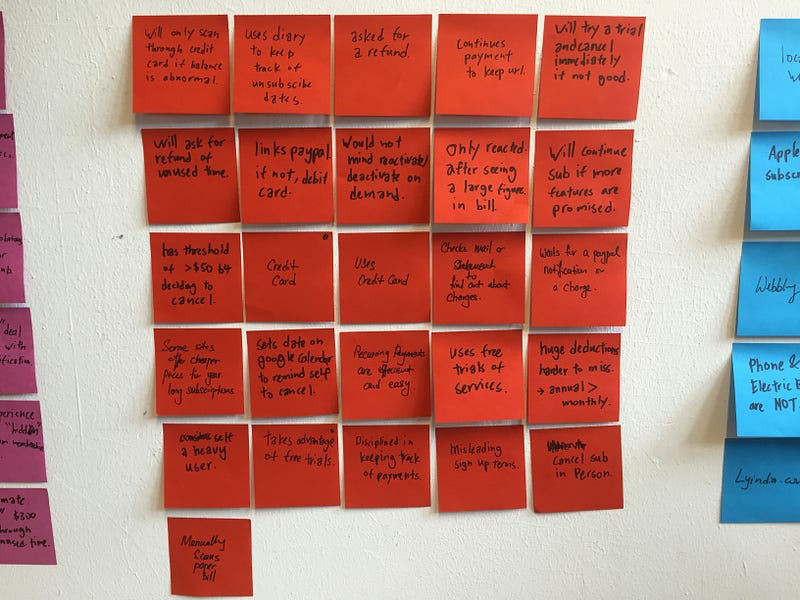 Will only scan
through credit
card if balance
is abnormal.
uses diary
to keep
track of
unsubscribe
dates.
asked for
a refund.
Continues
payment
to keep url.
Will try a trial
and cancel
immediately
if not good.
Will ask for
refund of
unused time.
links paypal
if not, debit
card.
Would not
mind reactivate/
deactivate on
demand.
Only reacted
after seeing
a large figure
in bill.
Will continue
sub if more
features are
promised.
has threshold
of >$50 b4
deciding to
cancel.
Credit
Card
Uses
Credit Card
Checks mail or
Statement
to
find out about
Charges.
Waits for a paypal
notification on
a Charge.
Some sites
offer cheaper
prices for year
long subscriptions
sets date on
google Calendar
to remind self
to cancel.
Recurring Payments
are efficient
and easy.
Uses free
trials of
services.
huge deductions
harder to miss.
→ annual >
monthly.
considers self
a heavy
user.
Takes advantage
of free trials.
Disciplined in
keeping track
of payments.
Misleading
sign up terms.
Cancel sub
in Person.
Manually
Scans
paper
bill
deal
with
"hidden"
$300
through
unused time.
Apple
subsc
Webbly
Phone &
Electric B
are NOT